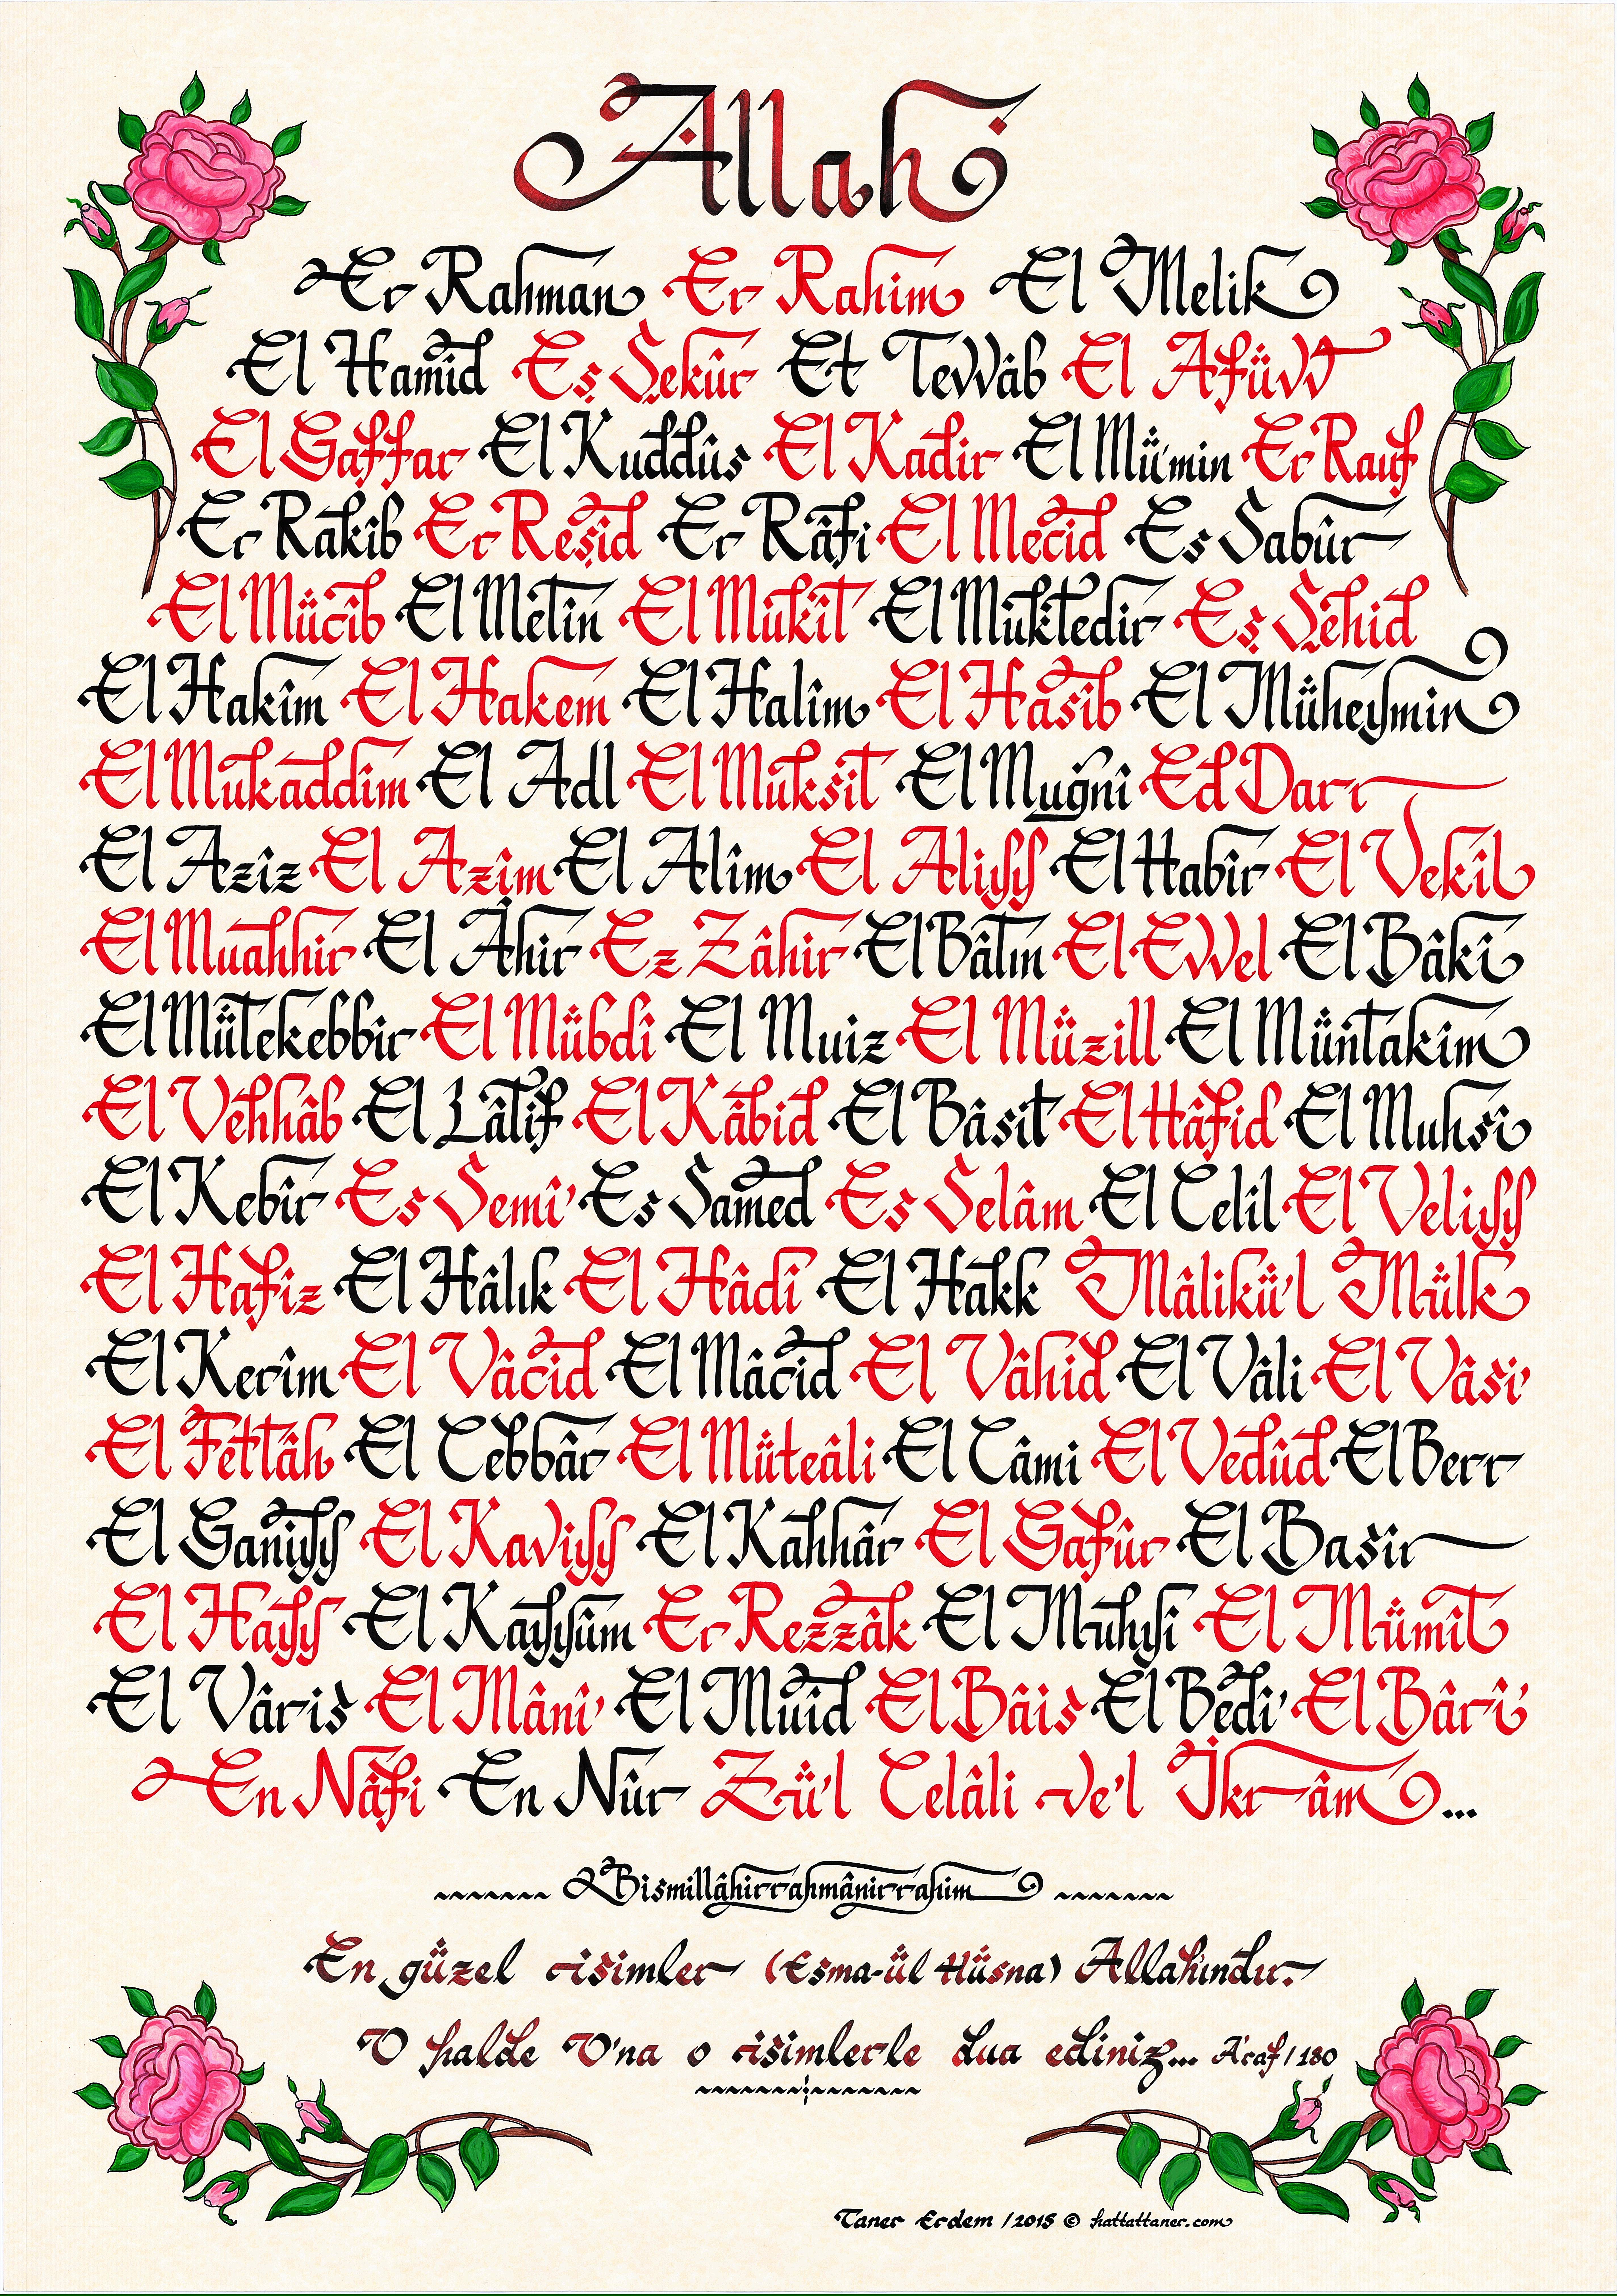 Allah
Er Rahman Er Rahim El Melik
El Hamîd Eş Şekûr Et Tevvâb El Afüvv
El Gaffar El Kuddûs El Kadir El Mü'min Er Rauf
Er Rakîb Er Reşîd Er Râfi El Mecîd Es Sabûr
El Mücîb El Metîn El Mukît El Muktedir Eş Şehîd
El Hakîm El Hakem El Halîm El Hasîb El Müheymin
El Mukaddim El Adl El Muksit El Muğnî Ed Darr
El Azîz El Azîm El Alîm El Aliyy El Habîr El Vekîl
El Muahhir El Âhir Ez Zâhir El Bâtın El Evvel El Bâkî
El Mütekebbir El Mübdî El Muiz El Müzill El Müntakim
El Vehhâb El Lâtîf El Kâbid El Bâsit El Hâfid El Muhsî
El Kebîr Es Semî' Es Samed Es Selâm El Celîl El Veliyy
El Hafîz El Hâlık El Hâdî El Hakk Mâlikü'l Mülk
El Kerîm El Vâcid El Mâcid El Vâhid El Vâli El Vâsi'
El Fettâh El Cebbâr El Müteâli El Câmi El Vedûd El Berr
El Ganiyy El Kaviyy El Kahhâr El Gafûr El Basîr
El Hayy El Kayyûm Er Rezzâk El Muhyî El Mümît
El Vâris El Mâni' El Muîd El Bâis El Bedî' El Bâri'
En Nâfi En Nûr Zü'l Celâli ve'l İkrâm...
Bismillâhirrahmânirrahim
En güzel isimler (Esma-ül Hüsna) Allah'ındır.
O halde O'na o isimlerle dua ediniz... A'raf / 180
Taner Erdem / 2015 © hattattaner.com